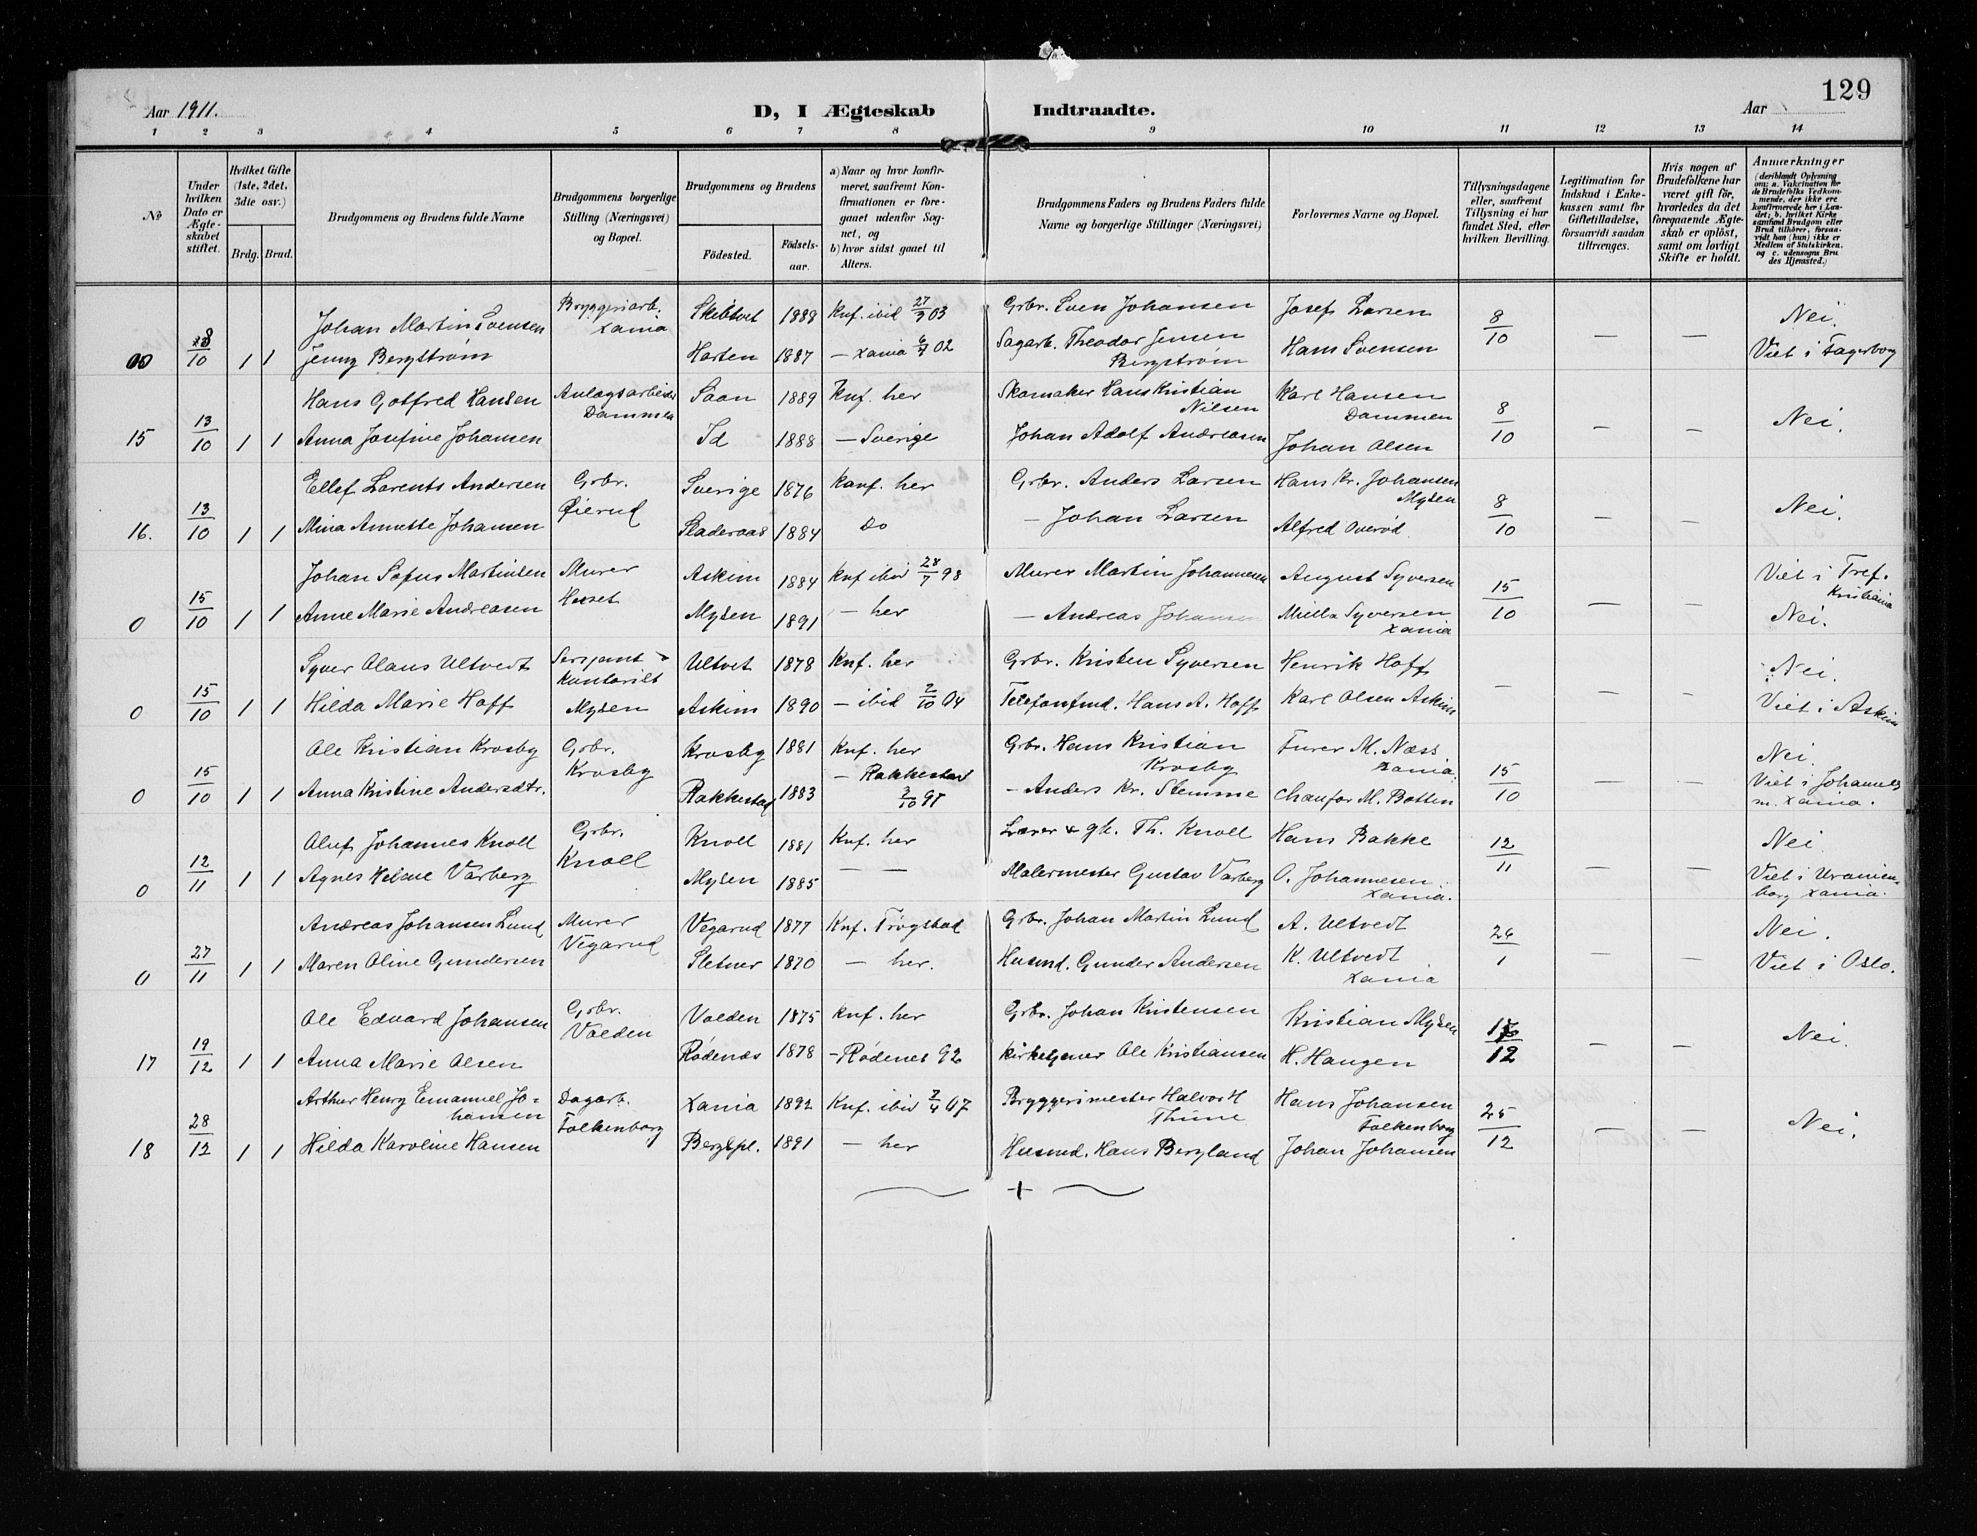 129
Aar 1911.
D, I Ægteskab Indtraadte.
Aar
1 2 3 4 5 6 7 8 9 10 11 12 13 14
No
Under hvilken Dato er Ægteskabet stiftet.
Hvilket Gifte (1ste, 2det, 3die osv.)
Brdg. Brud.
Brudgommens og Brudens fulde Navne
Brudgommens borgerlige Stilling (Næringsvei) og Bopæl.
Brudgommens og Brudens
Fødested.
Fødselsaar.
a) Naar og hvor konfirmeret, saafremt Konfirmationen er foregaaet udenfor Sognet, og
b) hvor sidst gaaet til Alters.
Brudgommens Faders og Brudens Faders fulde Navne og borgerlige Stillinger (Næringsvei)
Forlovernes Navne og Bopæl.
Tillysningsdagene eller, saafremt Tillysning ei har fundet Sted, efter hvilken Bevilling.
Legitimation for Indskud i Enkekassen samt for Giftetilladelse, forsaavidt saadan tiltrænges.
Hvis nogen af Brudefolkene har været gift før, hvorledes da det foregaaende Ægteskab er opløst, samt om lovligt Skifte er holdt.
Anmærkninger (deriblandt Oplysning om: a. Vakcination for de Brudefolks Vedkommende, der ikke ere konfirmerede her i Landet; b. hvilket Kirkesamfund Brudgom eller Brud tilhører, forsaavidt han (hun) ikke er Medlem af Statskirken, og c. udensogns Brudes Hjemsted.)
Johan Martin Svensen Bryggeriarb. Xania Skibtvet 1888 Knf. ibid 27/9 03 Grbr. Sven Johansen Josef Larsen 8/10 — — Nei.
00 8/10 1 1 Jenny Bergstrøm Hasten 1887 — Xania 02 Sagarb. Theodor Jensen Bergstrøm Hans Svensen Viet i Fagerborg
Hans Gotfred Hansen Anlægsarbeider Dammen Saan 1889 Knf. her Skomaker Hans Kristian Nilsen Karl Hansen Dammen 8/10 — — Nei.
15 13/10 1 1 Anna Josefine Johansen Id 1888 — Sverige Johan Adolf Andreasen Johan Olsen
Ellef Larents Andersen Grbr. Øierud Sverige 1876 Konf. her Grbr. Anders Larsen Hans Kr. Johansen Mysen 8/10 — — Nei.
16. 13/10 1 1 Mina Annette Johansen 1884 Do — Johan Larsen Alfred Overød.
Johan Sofus Martinsen Murer Huset Askim 1884 Knf ibid 28/7 98 Murer Martin Johannesen August Syversen 15/10 — — Viet i Tref. Kristiania
0 15/10 1 1 Anne Marie Andreasen Mysen 1891 — her — Andreas Johansen Milla Syversen Xania Nei.
Syver Olaus Ultvedt Sersjant Mysen Ultvet 1878 Knf. her Grbr. Kristen Syversen Henrik Hoff — — — Nei.
0 15/10 1 1 Hilda Marie Hoff Askim 1890 — ibid 2/10 04 Telefonfmd. Hans A. Hoff Karl Olsen Askim Viet i Askim
Ole Kristian Krosby Grbr. Krosby Krosby 1881 Knf. her Grbr. Hans Kristian Krosby Furer M. Næss Xania. 15/10 — — Nei.
0 15/10 1 1 Anna Kristine Andersdtr. Rakkestad 1883 — Rakkestad 3/10 97 — Anders Kr. Stemme Chaufør M. Botten Viet i Johannes m. Xania.
Oluf Johannes Knoll Grbr. Knoll Knoll 1881 Knf. her Lærer & gb. Th. Knoll Hans Bakke 12/11 — — Nei.
0 12/11 1 1 Agnes Helene Varberg Mysen 1885 — — Malermester Gustav Varberg O. Johannesen Xania. Viet i Uranienborg Xania.
Andreas Johansen Lund Murer Vegarud Vegarud 1877 Knf. Trøgstad Grbr. Johan Martin Lund A. Ultvedt 26/1 — — Nei.
0 27/11 1 1 Maren Oline Gundersen Sletner 1870 — her. Husmd. Gunder Andersen K. Ultvedt Xania Viet i Oslo.
Ole Edvard Johansen Grbr. Volden Volden 1875 Knf. her Grbr. Johan Kristensen Kristian Mysen 17/12 — — Nei.
17 19/12 1 1 Anna Marie Olsen Rødenæs 1878 — Rødenes 92 Kirketjener Ole Kristiansen H. Haugen
Arthur Henry Emanuel Johansen Dagarb. Folkenborg Xania 1892 Knf. ibid 7/4 07 Bryggerimester Halvor H Thune Hans Johansen Folkenborg 25/12 — — Nei.
18 28/12 1 1 Hilda Karoline Hansen Bergspl. 1891 — her Husmd. Hans Bergland Johan Johansen